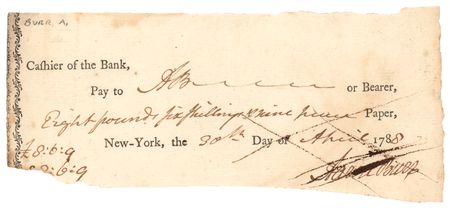 BURR, A.
Cashier of the Bank,
Pay to AB or Bearer,
Eight pounds six shillings & nine pence Paper,
New-York, the 30th Day of April 1788
£8:6:9
£8:6:9